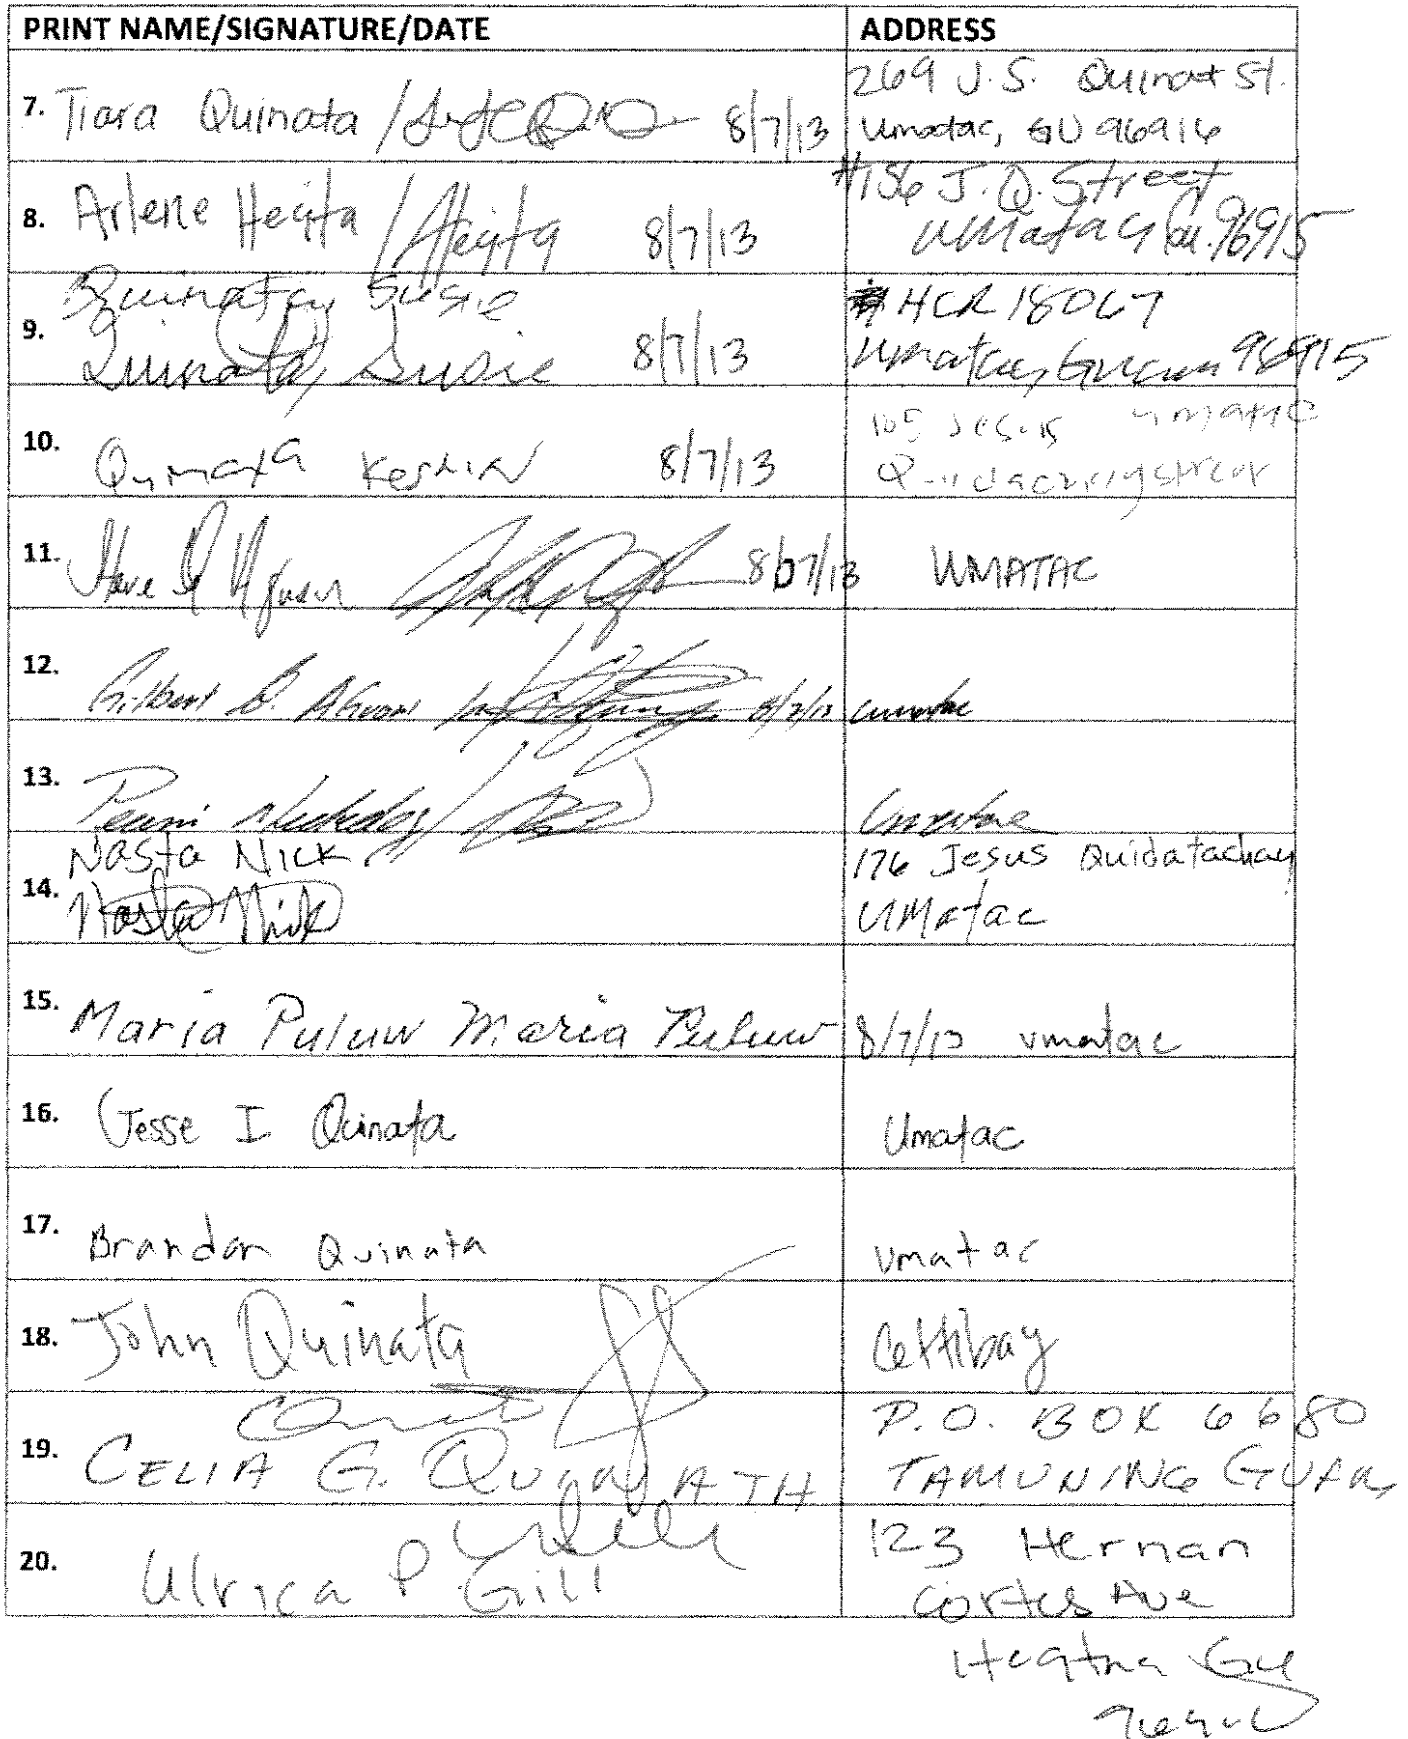 PRINT NAME/SIGNATURE/DATE ADDRESS
7. Tiara Quinata / 8/7/13 269 J.S. Quinat St.
Umatac, GU 96916
8. Arlene Hegta / AHegta 8/7/13 #156 J.Q. Street
Umatac Gu. 96915
9. Quinata, Susie
Quinata, Susie 8/7/13
HCR 18067
Umatac, Guam 96915
10. 8/7/13 105 Jesus Umatac
11. 8/07/13 UMATAC
12. Gilbert 8/7/13 Umatac
13. Umatac
14. Nasta Nick
Nasta Nick
176 Jesus Quidatachay
UMatac
15. Maria Puluw Maria Puluw 8/7/13 umatac
16. Jesse I Quinata Umatac
17. Brandon Quinata Umatac
18. John Quinata Cettibay
19. CELIA G. P.O. BOX 6680
TAMUNING GUAM
20. Ulrica P Gill 123 Hernan
Cortes Ave
Hagtna Gu